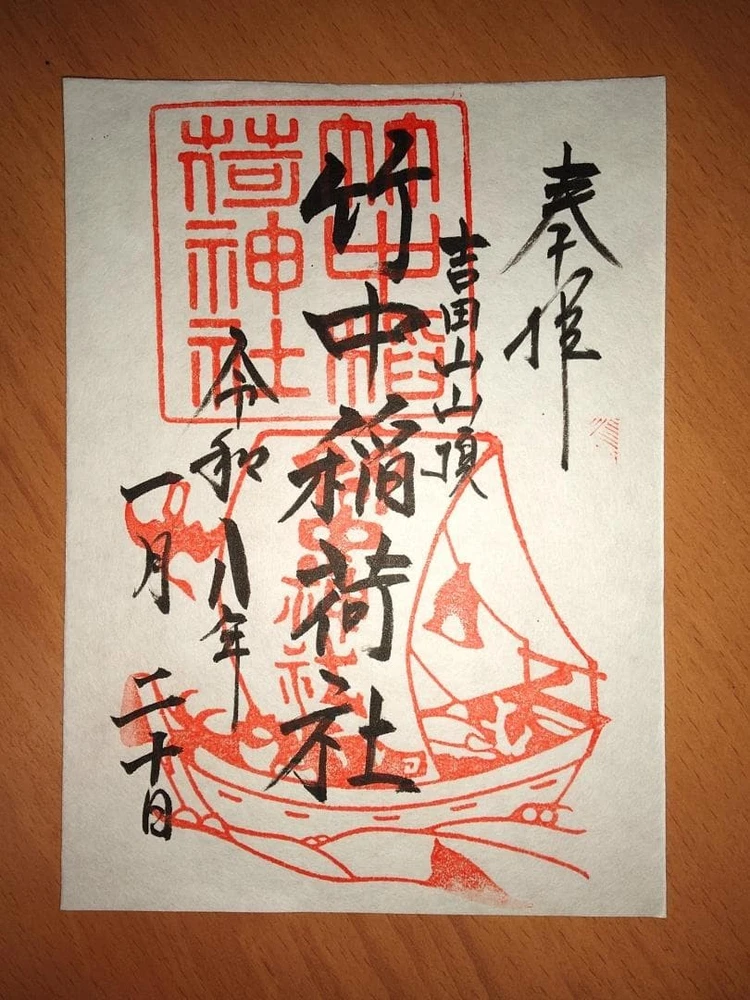 奉拝
吉田山山頂
竹中稲荷社
令和八年
一月二十日
竹中稲
荷神社